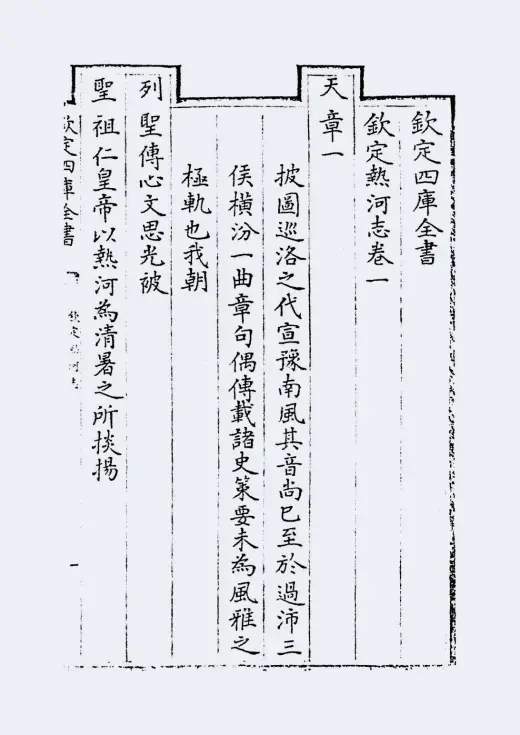 欽定四庫全書
欽定熱河志卷一
天章一
披圖巡洛之代宣豫南風其音尚已至於過沛三
侯橫汾一曲章句偶傳載諸史策要未為風雅之
極軌也我朝
列聖傳心文思光被
聖祖仁皇帝以熱河為清暑之所掞揚
欽定四庫全書
欽定熱河志
一